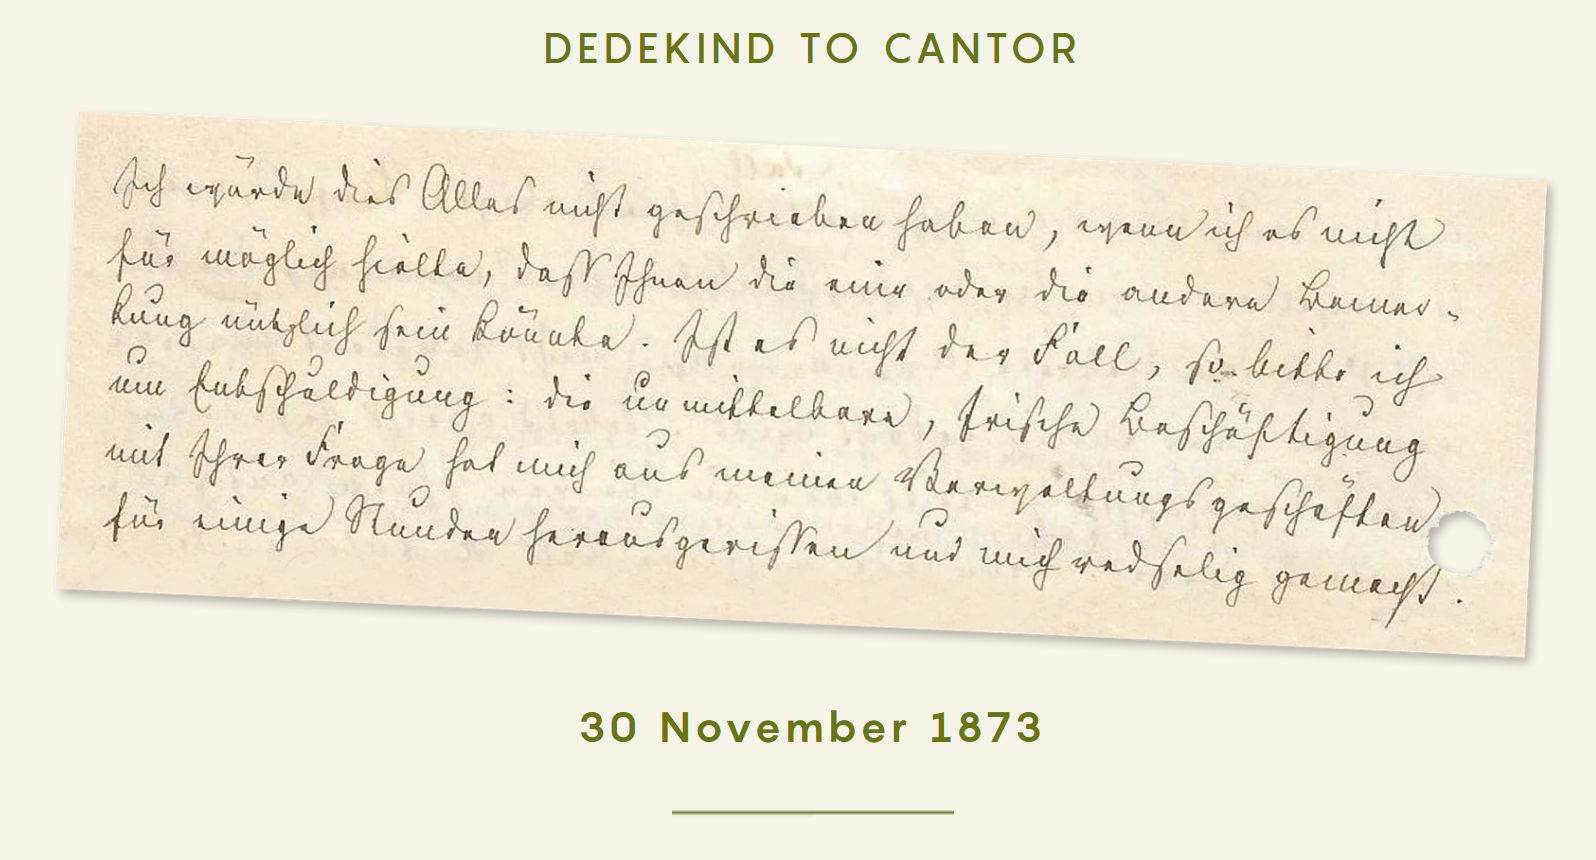 DEDEKIND TO CANTOR
Ich würde dies Alles nicht geschrieben haben, wenn ich es nicht
für möglich hielte, dass Ihnen die eine oder die andere Bemer-
kung nützlich sein könnte. Ist es nicht der Fall, so bitte ich
um Entschuldigung: die unmittelbare, frische Beschäftigung
mit Ihrer Frage hat mich aus meinen Verwaltungsgeschäften
für einige Stunden herausgerissen und mich redselig gemacht.
30 November 1873